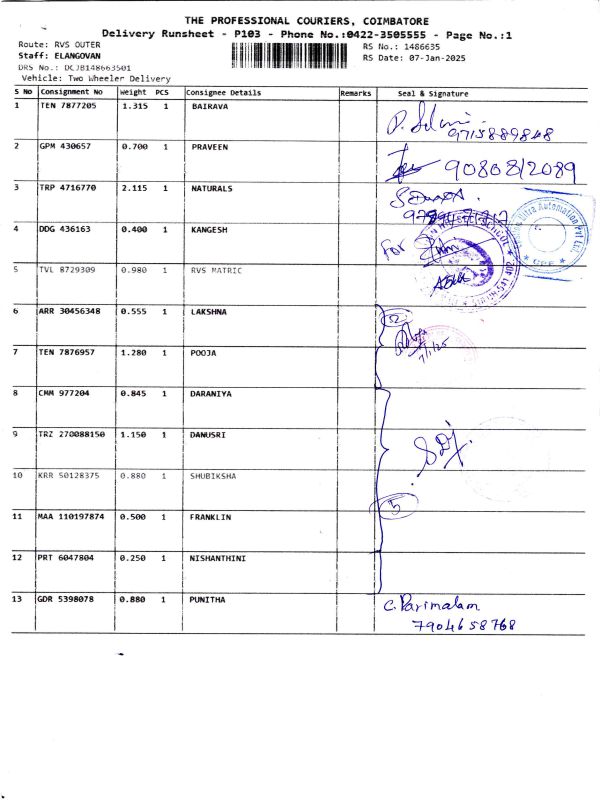 THE PROFESSIONAL COURIERS, COIMBATORE
Delivery Runsheet - P103 - Phone No.:0422-3505555 - Page No.:1
Route: RVS OUTER
RS No.: 1486635
Staff: ELANGOVAN
RS Date: 07-Jan-2025
DRS No.: DCJB148663501
Vehicle: Two Wheeler Delivery
S No Consignment No Weight PCS Consignee Details Remarks Seal & Signature
1 TEN 7877205 1.315 1 BAIRAVA
9715889848
2 GPM 430657 0.700 1 PRAVEEN
9080812089
3 TRP 4716770 2.115 1 NATURALS
4 DDG 436163 0.400 1 KANGESH
For
5 TVL 8729309 0.980 1 RVS MATRIC
6 ARR 30456348 0.555 1 LAKSHNA
2
7/1/25
7 TEN 7876957 1.280 1 POOJA
8 CMM 977204 0.845 1 DARANIYA
9 TRZ 270088150 1.150 1 DANUSRI
10 KRR 50128375 0.880 1 SHUBIKSHA
11 MAA 110197874 0.500 1 FRANKLIN
5
12 PRT 6047804 0.250 1 NISHANTHINI
13 GDR 5398078 0.880 1 PUNITHA
C. Parimalam
7904658768